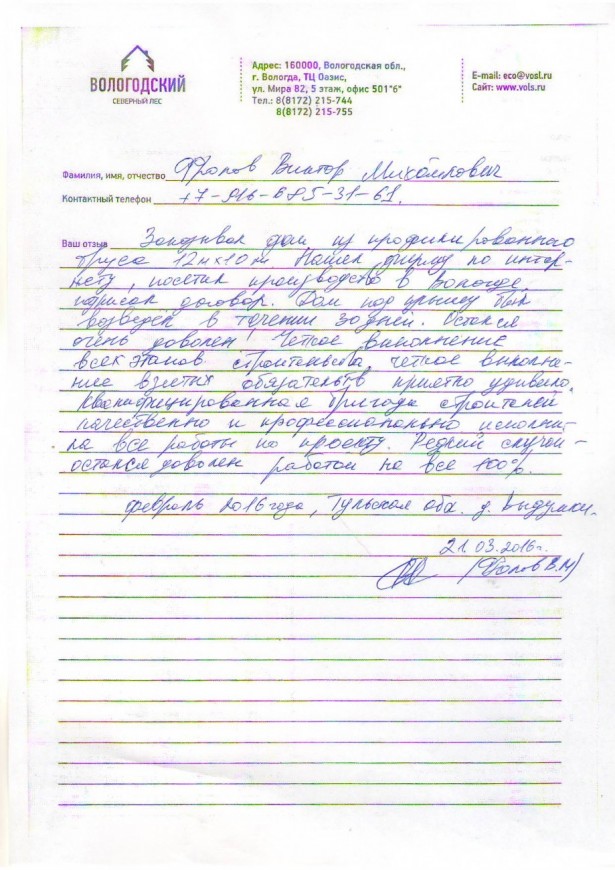 ВОЛОГОДСКИЙ
СЕВЕРНЫЙ ЛЕС
Адрес: 160000, Вологодская обл.,
г. Вологда, ТЦ Оазис,
ул. Мира 82, 5 этаж, офис 501"б"
Тел.: 8(8172) 215-744
8(8172) 215-755
E-mail: eco@vosl.ru
Сайт: www.vols.ru
Фамилия, имя, отчество Фролов Виктор Михайлович
Контактный телефон +7-916-885-31-61.
Ваш отзыв Заказывал дом из профилированного
бруса 12м х 10м. Нашел фирму по интер-
нету, посетил производство в Вологде,
подписал договор. Дом под крышу был
возведен в течении 30 дней. Остался
очень доволен! Четкое выполнение
всех этапов строительства, четкое выполне-
ние взятых обязательств приятно удивило.
Квалифицированная бригада строителей
качественно и профессионально исполни-
ла все работы по проекту. Редкий случай -
остался доволен работой на все 100%.
февраль 2016 года, Тульская обл. д. Выдумки.
21.03.2016г.
(Фролов В.М)